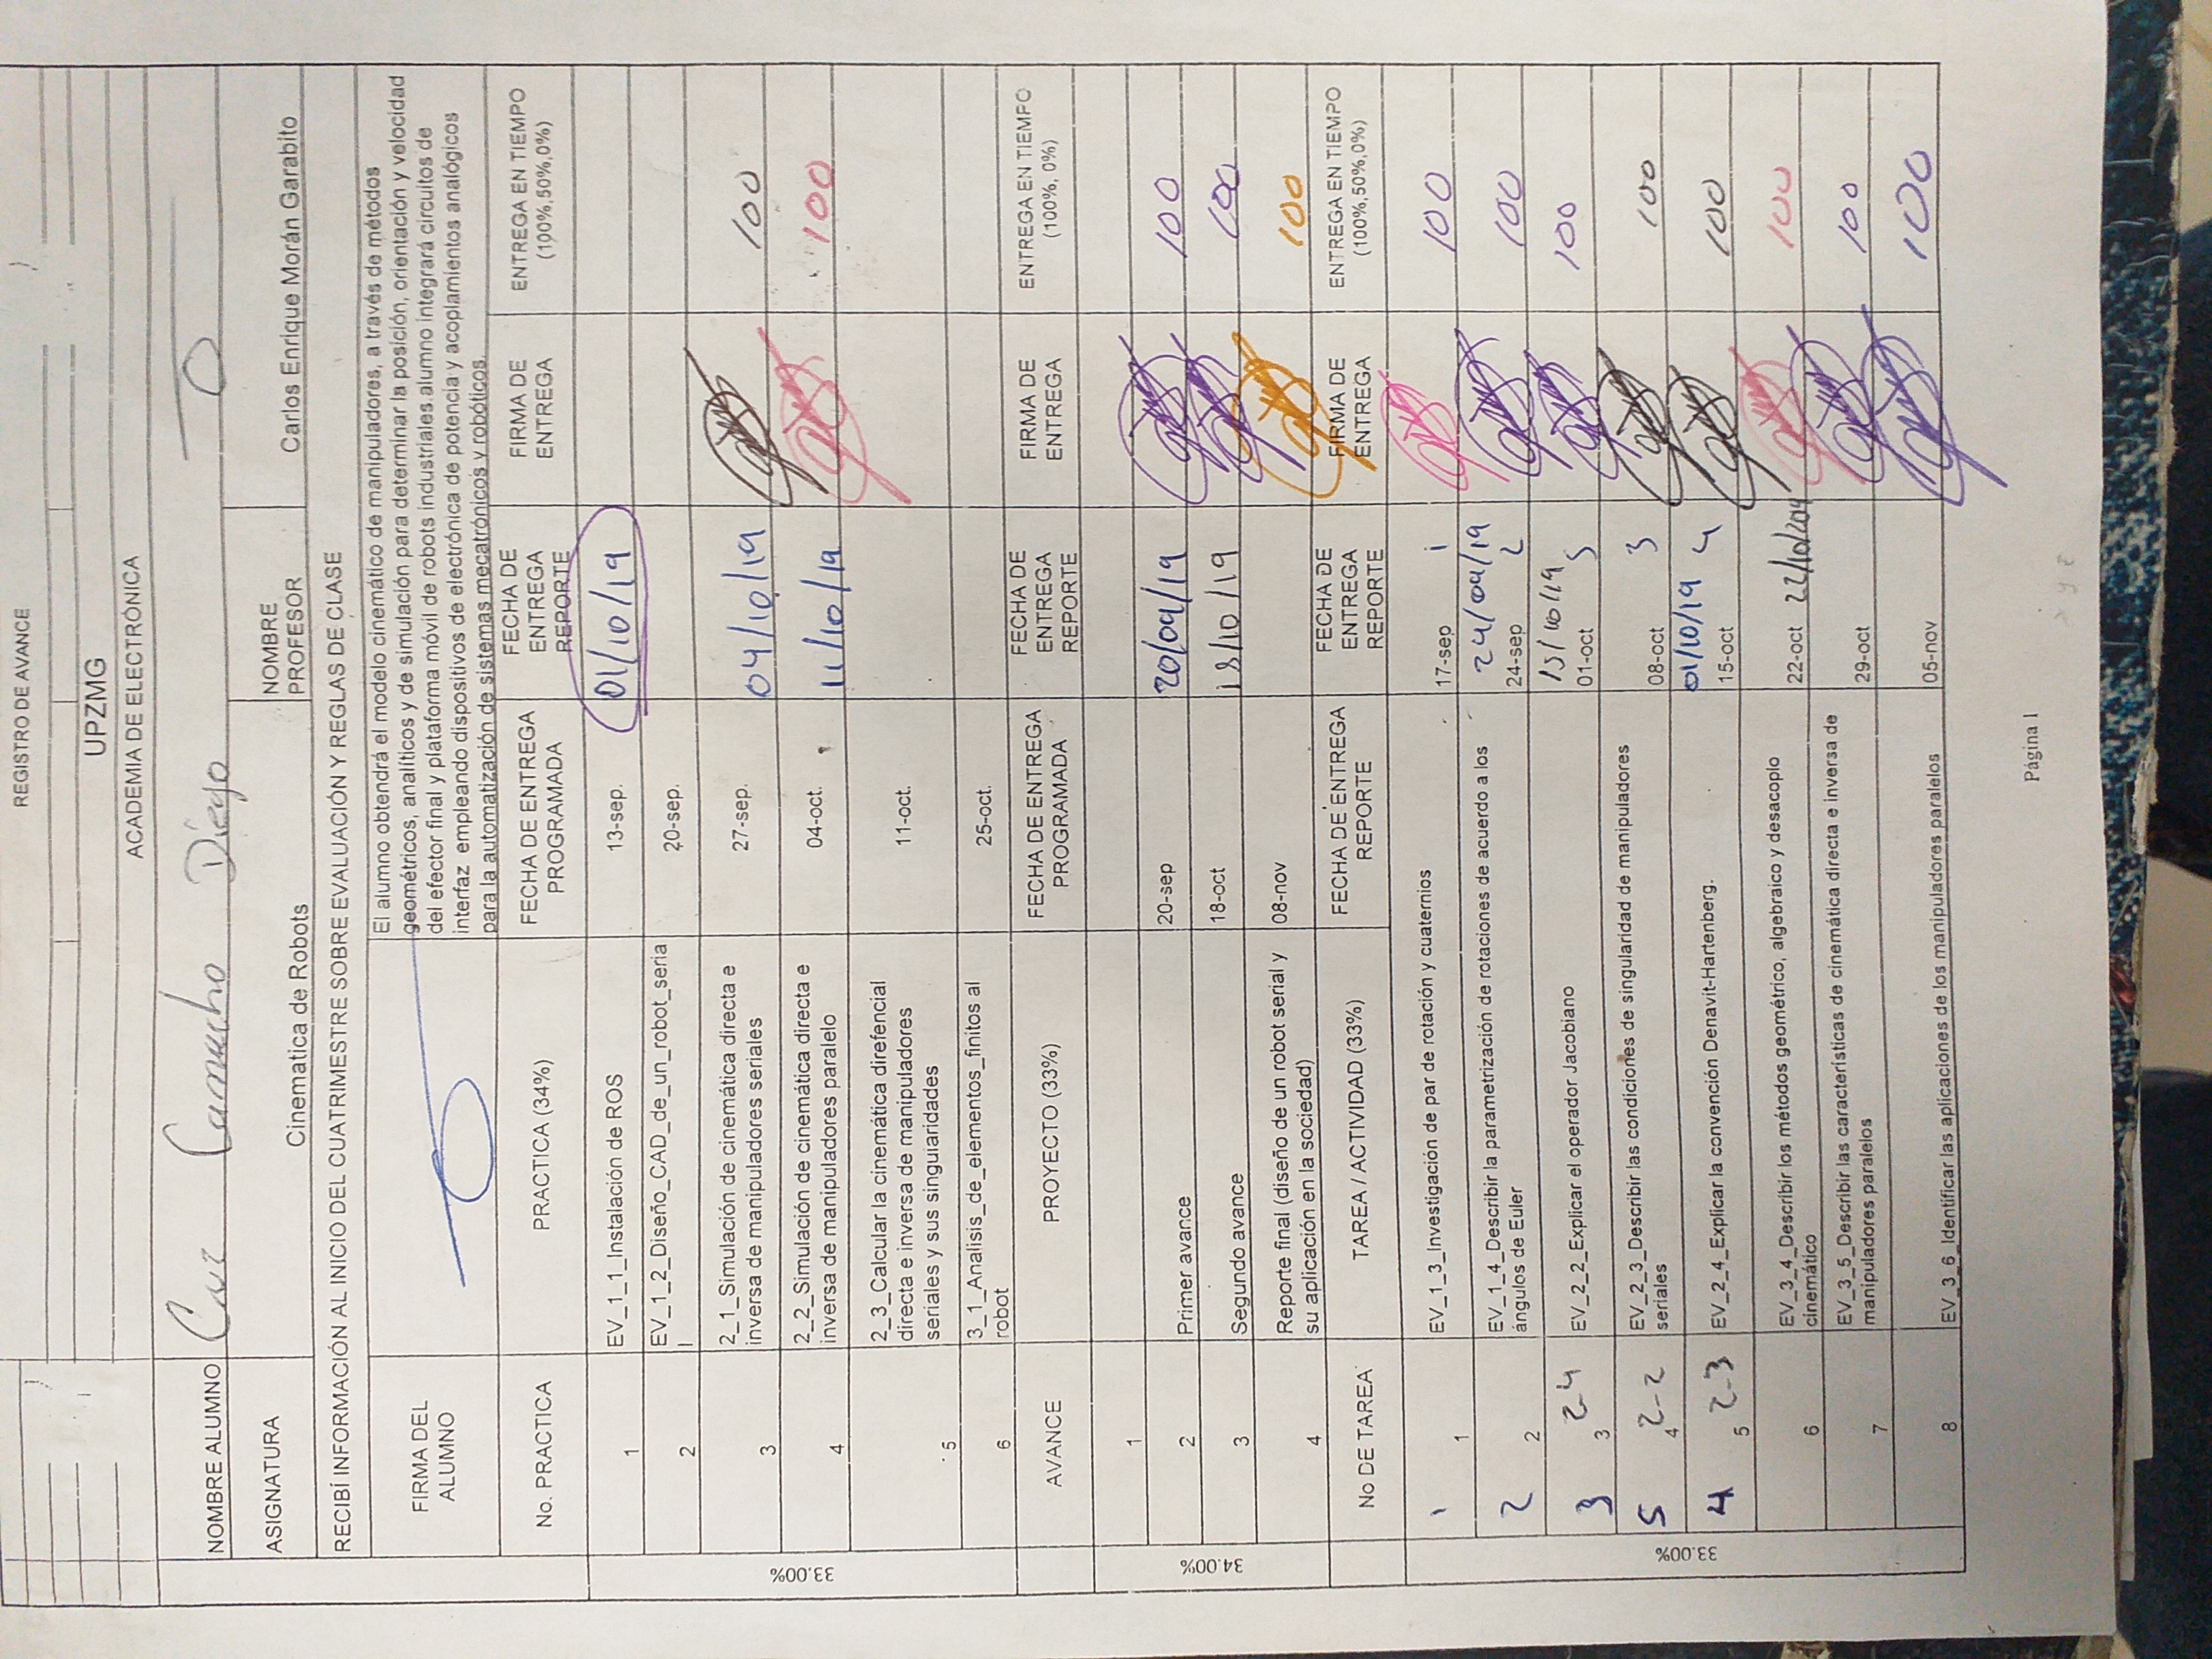 REGISTRO DE AVANCE
UPZMG
ACADEMIA DE ELECTRÓNICA
NOMBRE ALUMNO Cruz Camacho Diego
ASIGNATURA Cinematica de Robots NOMBRE PROFESOR Carlos Enrique Morán Garabito
RECIBÍ INFORMACIÓN AL INICIO DEL CUATRIMESTRE SOBRE EVALUACIÓN Y REGLAS DE CLASE
FIRMA DEL ALUMNO
El alumno obtendrá el modelo cinemático de manipuladores, a través de métodos
geométricos, analíticos y de simulación para determinar la posición, orientación y velocidad
del efector final y plataforma móvil de robots industriales.alumno integrará circuitos de
interfaz empleando dispositivos de electrónica de potencia y acoplamientos analógicos
para la automatización de sistemas mecatrónicos y robóticos.
No. PRACTICA PRACTICA (34%) FECHA DE ENTREGA PROGRAMADA FECHA DE ENTREGA REPORTE FIRMA DE ENTREGA ENTREGA EN TIEMPO (100%,50%,0%)
33.00%
1 EV_1_1_Instalación de ROS 13-sep. 01/10/19
2 EV_1_2_Diseño_CAD_de_un_robot_serial 20-sep.
3 2_1_Simulación de cinemática directa e inversa de manipuladores seriales 27-sep. 04/10/19 100
4 2_2_Simulación de cinemática directa e inversa de manipuladores paralelo 04-oct. 11/10/19 100
5 2_3_Calcular la cinemática direfencial directa e inversa de manipuladores seriales y sus singularidades 11-oct.
6 3_1_Analisis_de_elementos_finitos al robot 25-oct.
AVANCE PROYECTO (33%) FECHA DE ENTREGA PROGRAMADA FECHA DE ENTREGA REPORTE FIRMA DE ENTREGA ENTREGA EN TIEMPO (100%, 0%)
34.00%
1
2 Primer avance 20-sep 20/09/19 100
3 Segundo avance 18-oct 18/10/19 100
4 Reporte final (diseño de un robot serial y su aplicación en la sociedad) 08-nov 100
No DE TAREA TAREA / ACTIVIDAD (33%) FECHA DE ENTREGA REPORTE FECHA DE ENTREGA REPORTE FIRMA DE ENTREGA ENTREGA EN TIEMPO (100%,50%,0%)
33.00%
1 1 EV_1_3_Investigación de par de rotación y cuaternios 17-sep 1 100
2 2 EV_1_4_Describir la parametrización de rotaciones de acuerdo a los ángulos de Euler 24/09/19 24-sep 2 100
3 3 2 4 EV_2_2_Explicar el operador Jacobiano 15/10/19 01-oct 5 100
5 4 2-2 EV_2_3_Describir las condiciones de singularidad de manipuladores seriales 08-oct 3 100
4 5 2-3 EV_2_4_Explicar la convención Denavit-Hartenberg. 01/10/19 15-oct 4 100
6 EV_3_4_Describir los métodos geométrico, algebraico y desacoplo cinemático 22-oct 22/10/2019 100
7 EV_3_5_Describir las características de cinemática directa e inversa de manipuladores paralelos 29-oct 100
8 EV_3_6_Identificar las aplicaciones de los manipuladores paralelos 05-nov 100
Página 1